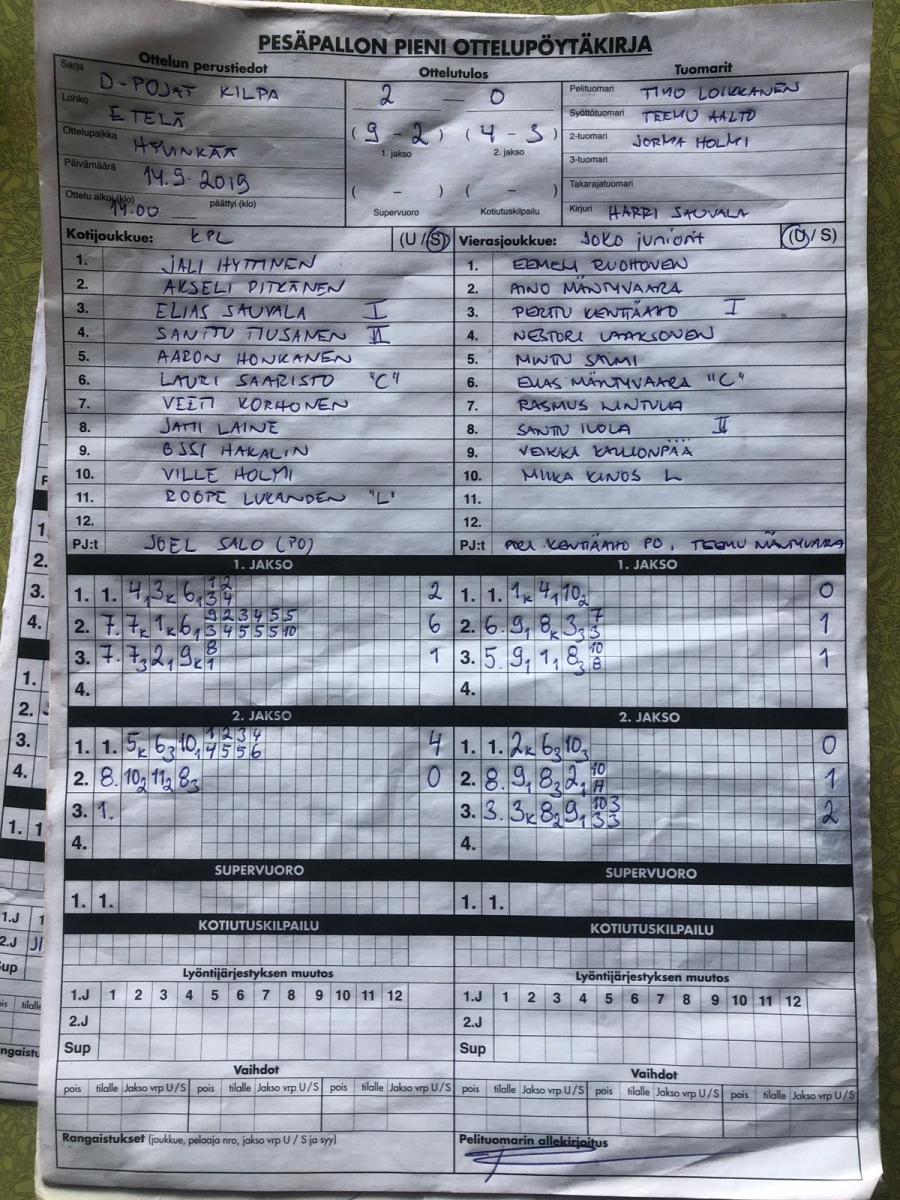 PESÄPALLON PIENI OTTELUPÖYTÄKIRJA
Ottelun perustiedot Ottelutulos Tuomarit
Sarja D-POJAT KILPA
Lohko ETELÄ
Ottelupaikka HYVINKÄÄ
Päivämäärä 14.9.2019
Ottelu alkoi (klo) 14.00 päättyi (klo)
2 — 0
( 9 - 2 ) ( 4 - 3 )
1. jakso 2. jakso
( - ) ( - )
Supervuoro Kotiutuskilpailu
Pelituomari TIMO LOIKKANEN
Syöttötuomari TEEMU AALTO
2-tuomari JORMA HOLMI
3-tuomari
Takarajatuomari
Kirjuri HARRI SAUVALA
Kotijoukkue: KPL (U / S) Vierasjoukkue: JOKO juniorit (U / S)
1. JALI HYTTINEN 1. EEMELI RUOHONEN
2. AKSELI PITKÄNEN 2. AINO MÄNTYVAARA
3. ELIAS SAUVALA I 3. PERTTU KENTTÄAHO I
4. SANTTU TIUSANEN II 4. NESTORI LAAKSONEN
5. AARON HONKANEN 5. MINTU SALMI
6. LAURI SAARISTO "C" 6. ELIAS MÄNTYVAARA "C"
7. VEETI KORHONEN 7. RASMUS LINTULA
8. JAMI LAINE 8. SANTTU IVOLA II
9. OSSI HAKALIN 9. VEIKKA KALLIONPÄÄ
10. VILLE HOLMI 10. MIIKA KINOS L
11. ROOPE LUKANDEN "L" 11.
12. 12.
PJ:t JOEL SALO (PO) PJ:t ARI KENTTÄAHO PO, TEEMU MÄNTYVAARA
1. JAKSO 1. JAKSO
1. 1. 4₁3ₖ6₁ 1 2 2 1. 1. 1ₖ4₁10₂ 0
3 4
2. 7. 7ₖ1ₖ6₁ 9 2 3 4 5 5 6 2. 6. 9₁8ₖ3₃ 7 1
3 4 5 5 5 10 3
3. 7. 7₃2₁9ₖ 8 1 3. 5. 9₁1₁8₃ 10 1
1 8
4. 4.
2. JAKSO 2. JAKSO
1. 1. 5ₖ6₃10₁ 1 2 3 4 4 1. 1. 2ₖ6₃10₃ 0
4 5 5 6
2. 8. 10₂11₂8₃ 0 2. 8. 9₁8₃2₁ 10 1
H
3. 1. 3. 3. 3ₖ8₂9₁ 10 3 2
3 3
4. 4.
SUPERVUORO SUPERVUORO
1. 1. 1. 1.
KOTIUTUSKILPAILU KOTIUTUSKILPAILU
Lyöntijärjestyksen muutos Lyöntijärjestyksen muutos
1.J 1 2 3 4 5 6 7 8 9 10 11 12 1.J 1 2 3 4 5 6 7 8 9 10 11 12
2.J 2.J
Sup Sup
Vaihdot Vaihdot
pois tilalle Jakso vrp U / S pois tilalle Jakso vrp U / S pois tilalle Jakso vrp U / S pois tilalle Jakso vrp U / S pois tilalle Jakso vrp U / S pois tilalle Jakso vrp U / S
Rangaistukset (joukkue, pelaaja nro, jakso vrp U / S ja syy) Pelituomarin allekirjoitus